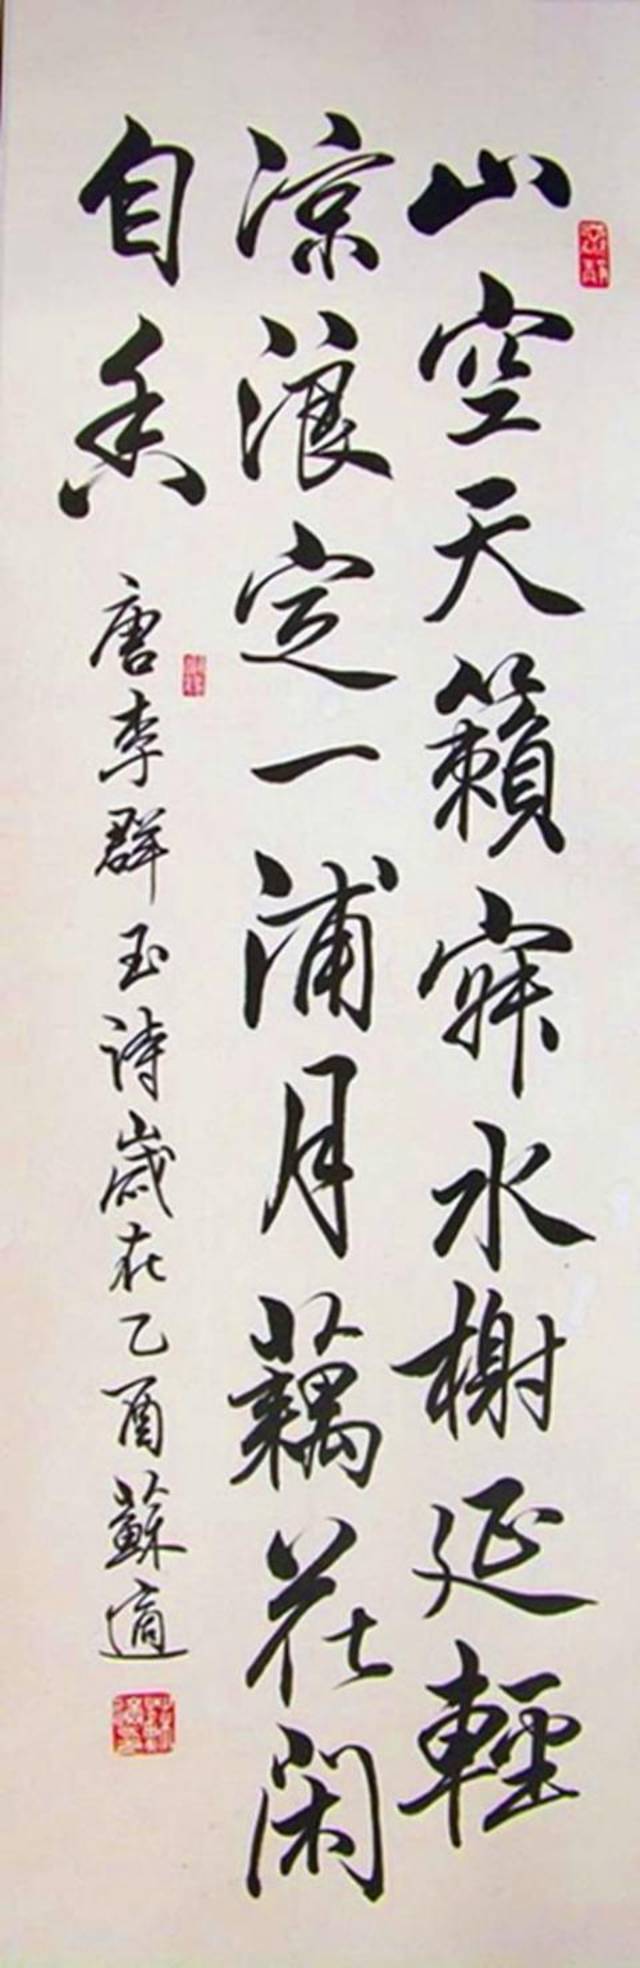 山空天籟寂水榭延輕
涼浪定一浦月藕花閑
自香
唐李群玉詩歲在乙酉蘇適